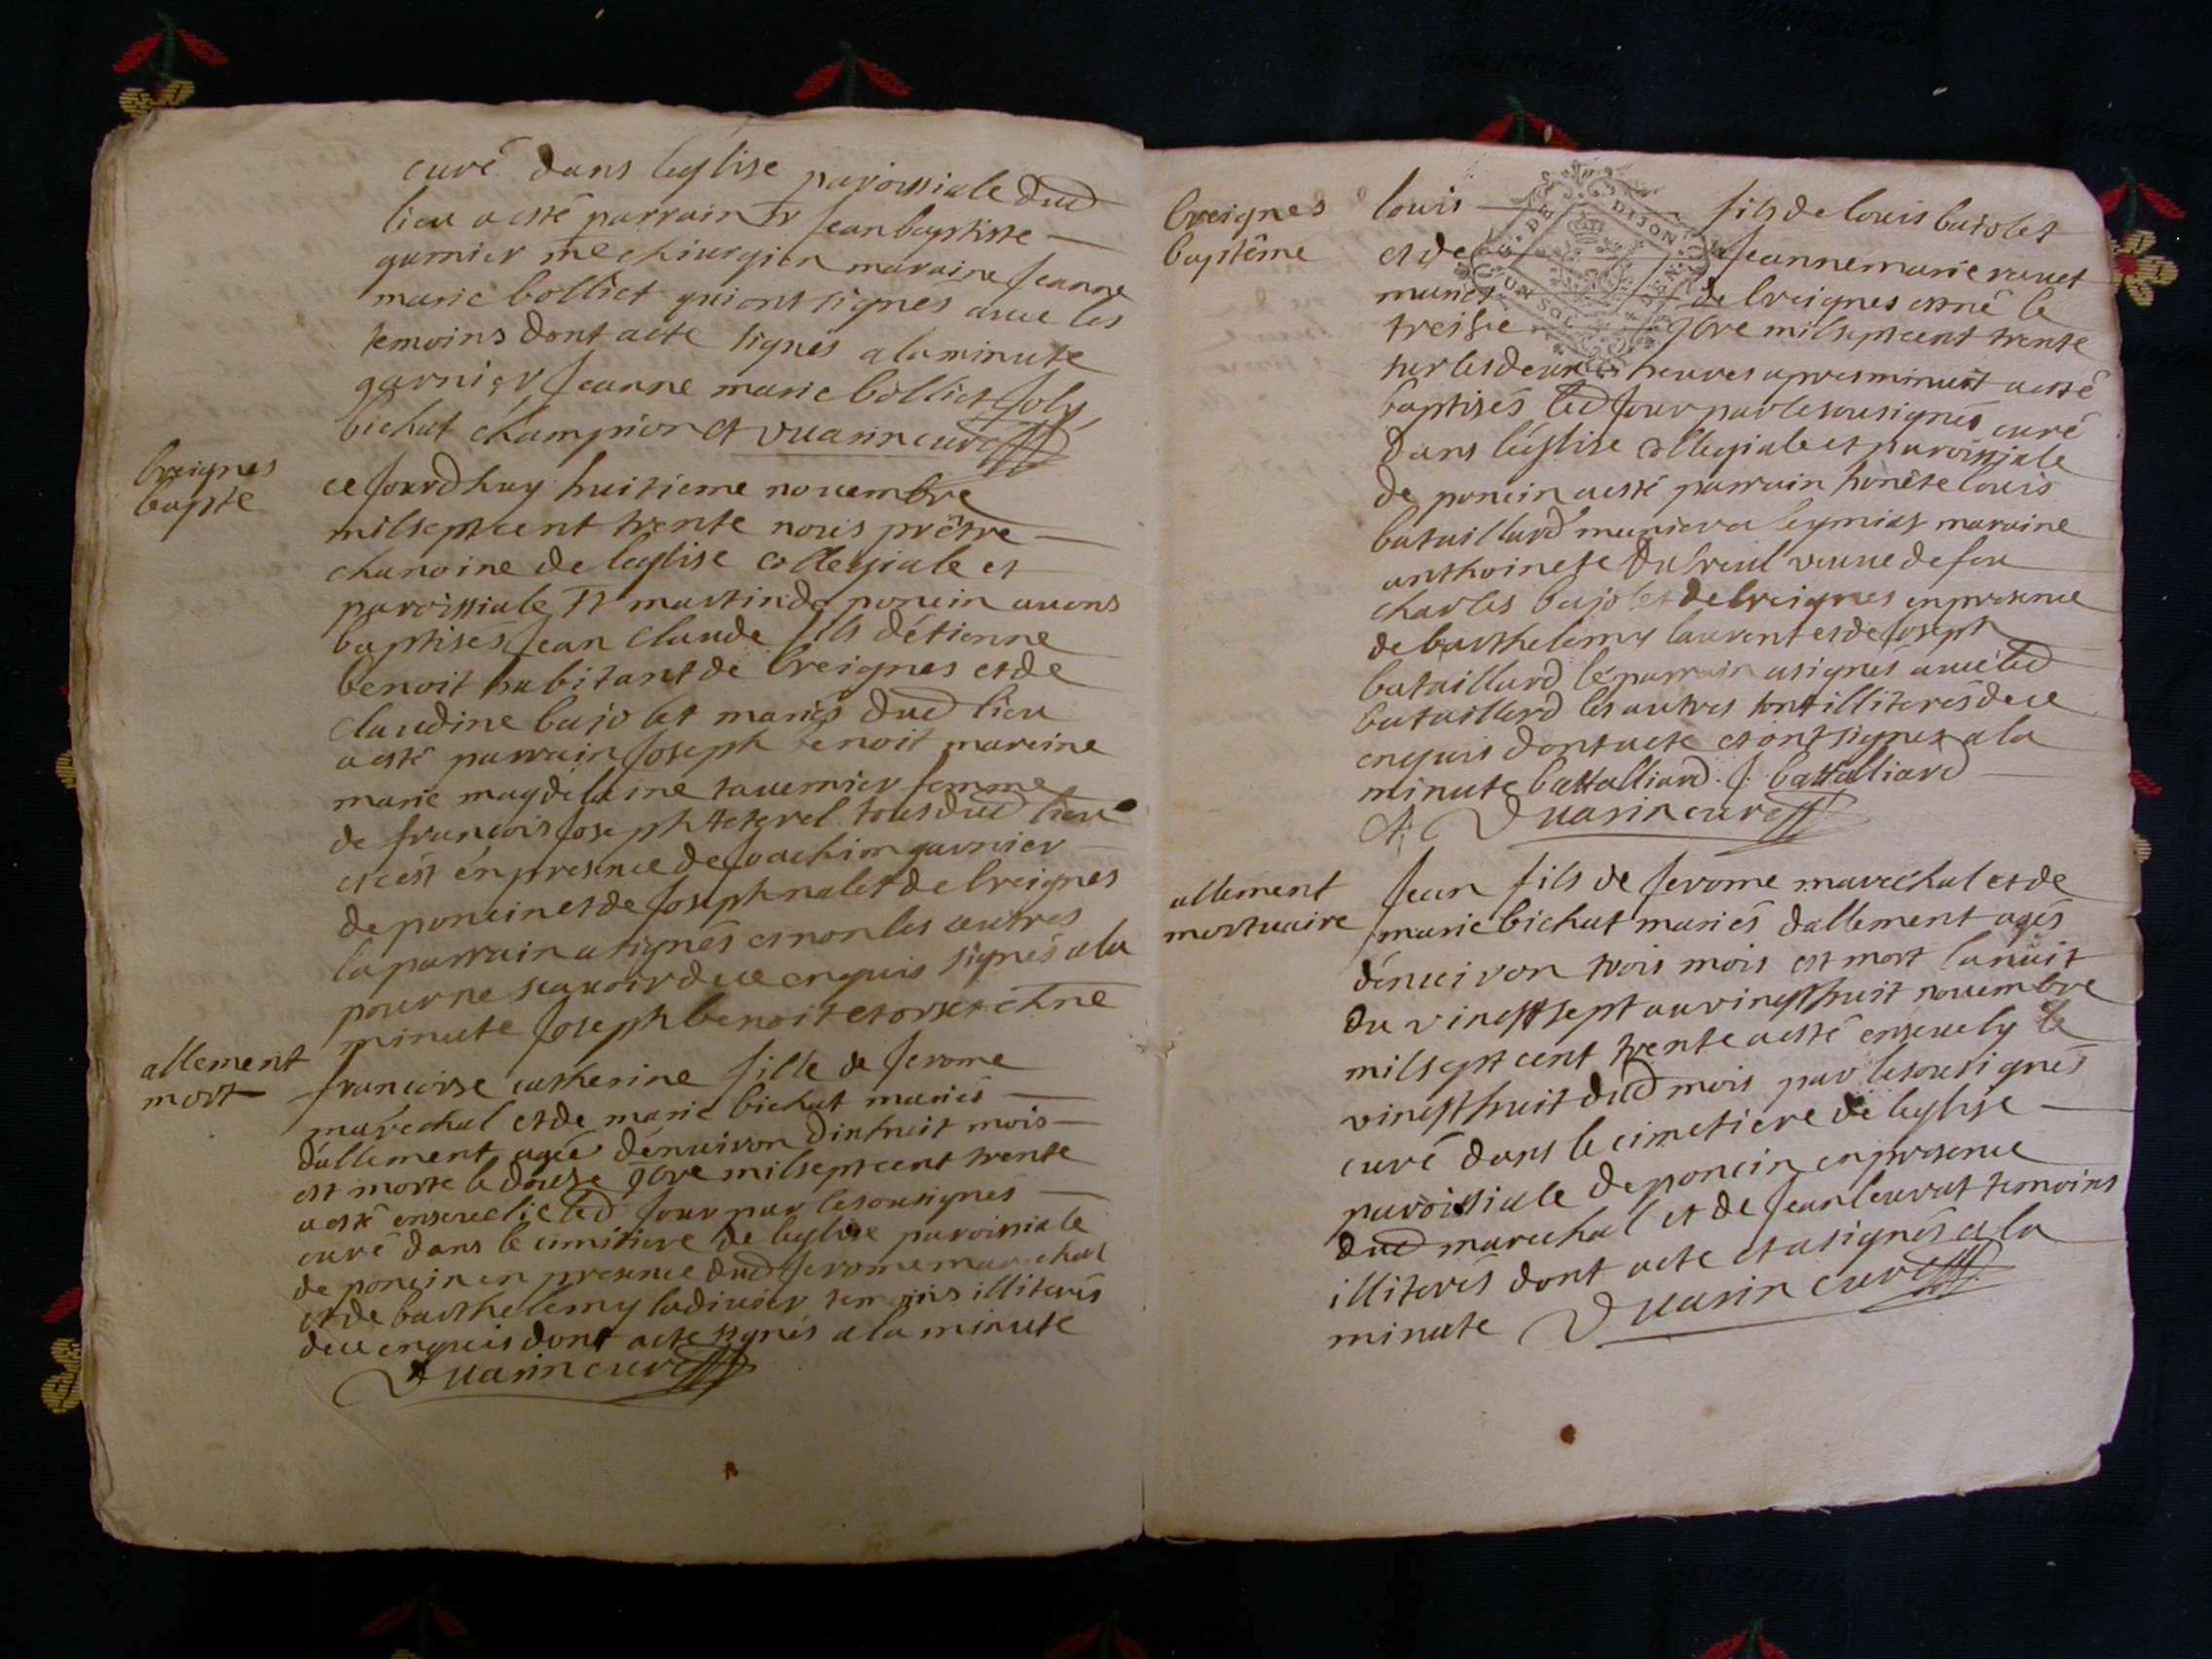 curé dans leglise paroissiale dud
lieu a esté parrain sr Jean baptiste
garnier me chiurgien maraine Jeanne
marie bolliet qui ont signes auec les
temoins dont acte signes a la minute
garnier Jeanne marie bolliet Joly
bichat champion et vuarin curé
breignes
bapte
ce Jourdhuy huitieme nouembre
mil sept cent trente nous prêtre
chanoine de leglise collegiale et
paroissiale st martin de poncin auons
baptisés Jean claude fils d'étienne
benoit habitant de breignes et de
claudine bajolet mariés dud lieu
a esté parrain Joseph benoit mareine
marie magdelaine tauernier femme
de françois Joseph tous dud lieu
et cést én presence de Joachim garnier
de poncin et de Joseph nalet de breignes
le parrain a signés et non les autres
pour ne scauoir de ce enquis signés a la
minute Joseph benoit et orset chne
allement
mort
francoise catherine fille de Jerome
maréchal et de marie bichat mariés
dallement agée dénuiron dixhuit mois
est morte le douze 9bre mil sept cent trente
a esté enseuelie led Jour par le sousignés
curé dans le cimitiere de leglise paroissiale
de poncin en presence dud Jerome marechal
et de barthelemy ladiuier temoins illiterés
de ce enquis dont acte signés a la minute
Vuarin curé
breignes
baptême
louis fils de louis bajolet
et de Jeanne marie rauet
mariés de breignes est né le
treise 9bre mil sept cent trente
sur les deux heures apres minuit a esté
baptisés led Jour par le sousignés curé
dans léglise collegiale et paroissiale
de poncin a esté parrain honête louis
bataillard munier a leymiat maraine
anthoinete dubreul veuue de feu
charles bajolet de breignes en presence
de barthelemy laurent et de Joseph
bataillard le parrain a signés auec led
bataillard les autres sont illiterés de ce
enquis dont acte et ont signes a la
minute battalliard J. battalliard
et Vuarin curé
allement
mortuaire
Jean fils de Jerome marechal et de
marie bichat mariés dallement agés
dénuiron trois mois est mort la nuit
du vingt sept au vingt huit nouembre
mil sept cent trente a esté enseuely le
vingt huit dud mois par le sousignés
curé dans le cimetiere de leglise
paroissiale de poncin en presence
dud marechal et de Jean leurat temoins
illiterés dont acte et a signés a la
minute Vuarin curé
G. DE DIJON